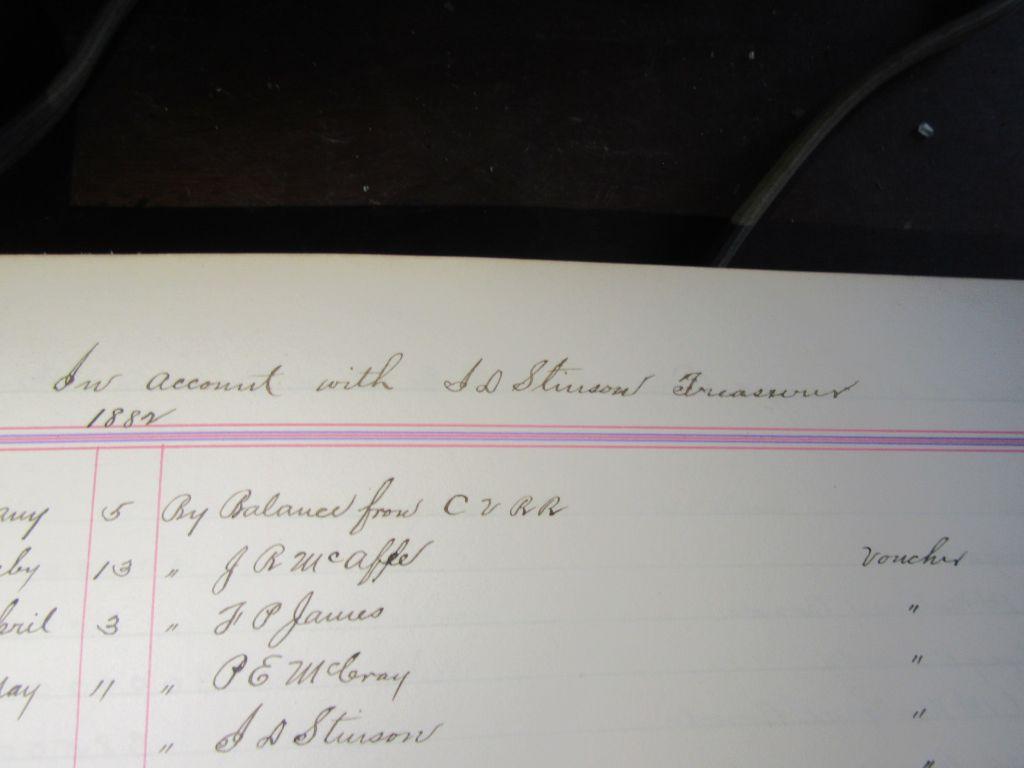 In account with J D Stinson Treasurer
1882
any 5 By Balance from C V RR
eby 13 " J R McAffe Voucher
pril 3 " F P James "
ay 11 " P E McCray "
" J D Stinson "
"